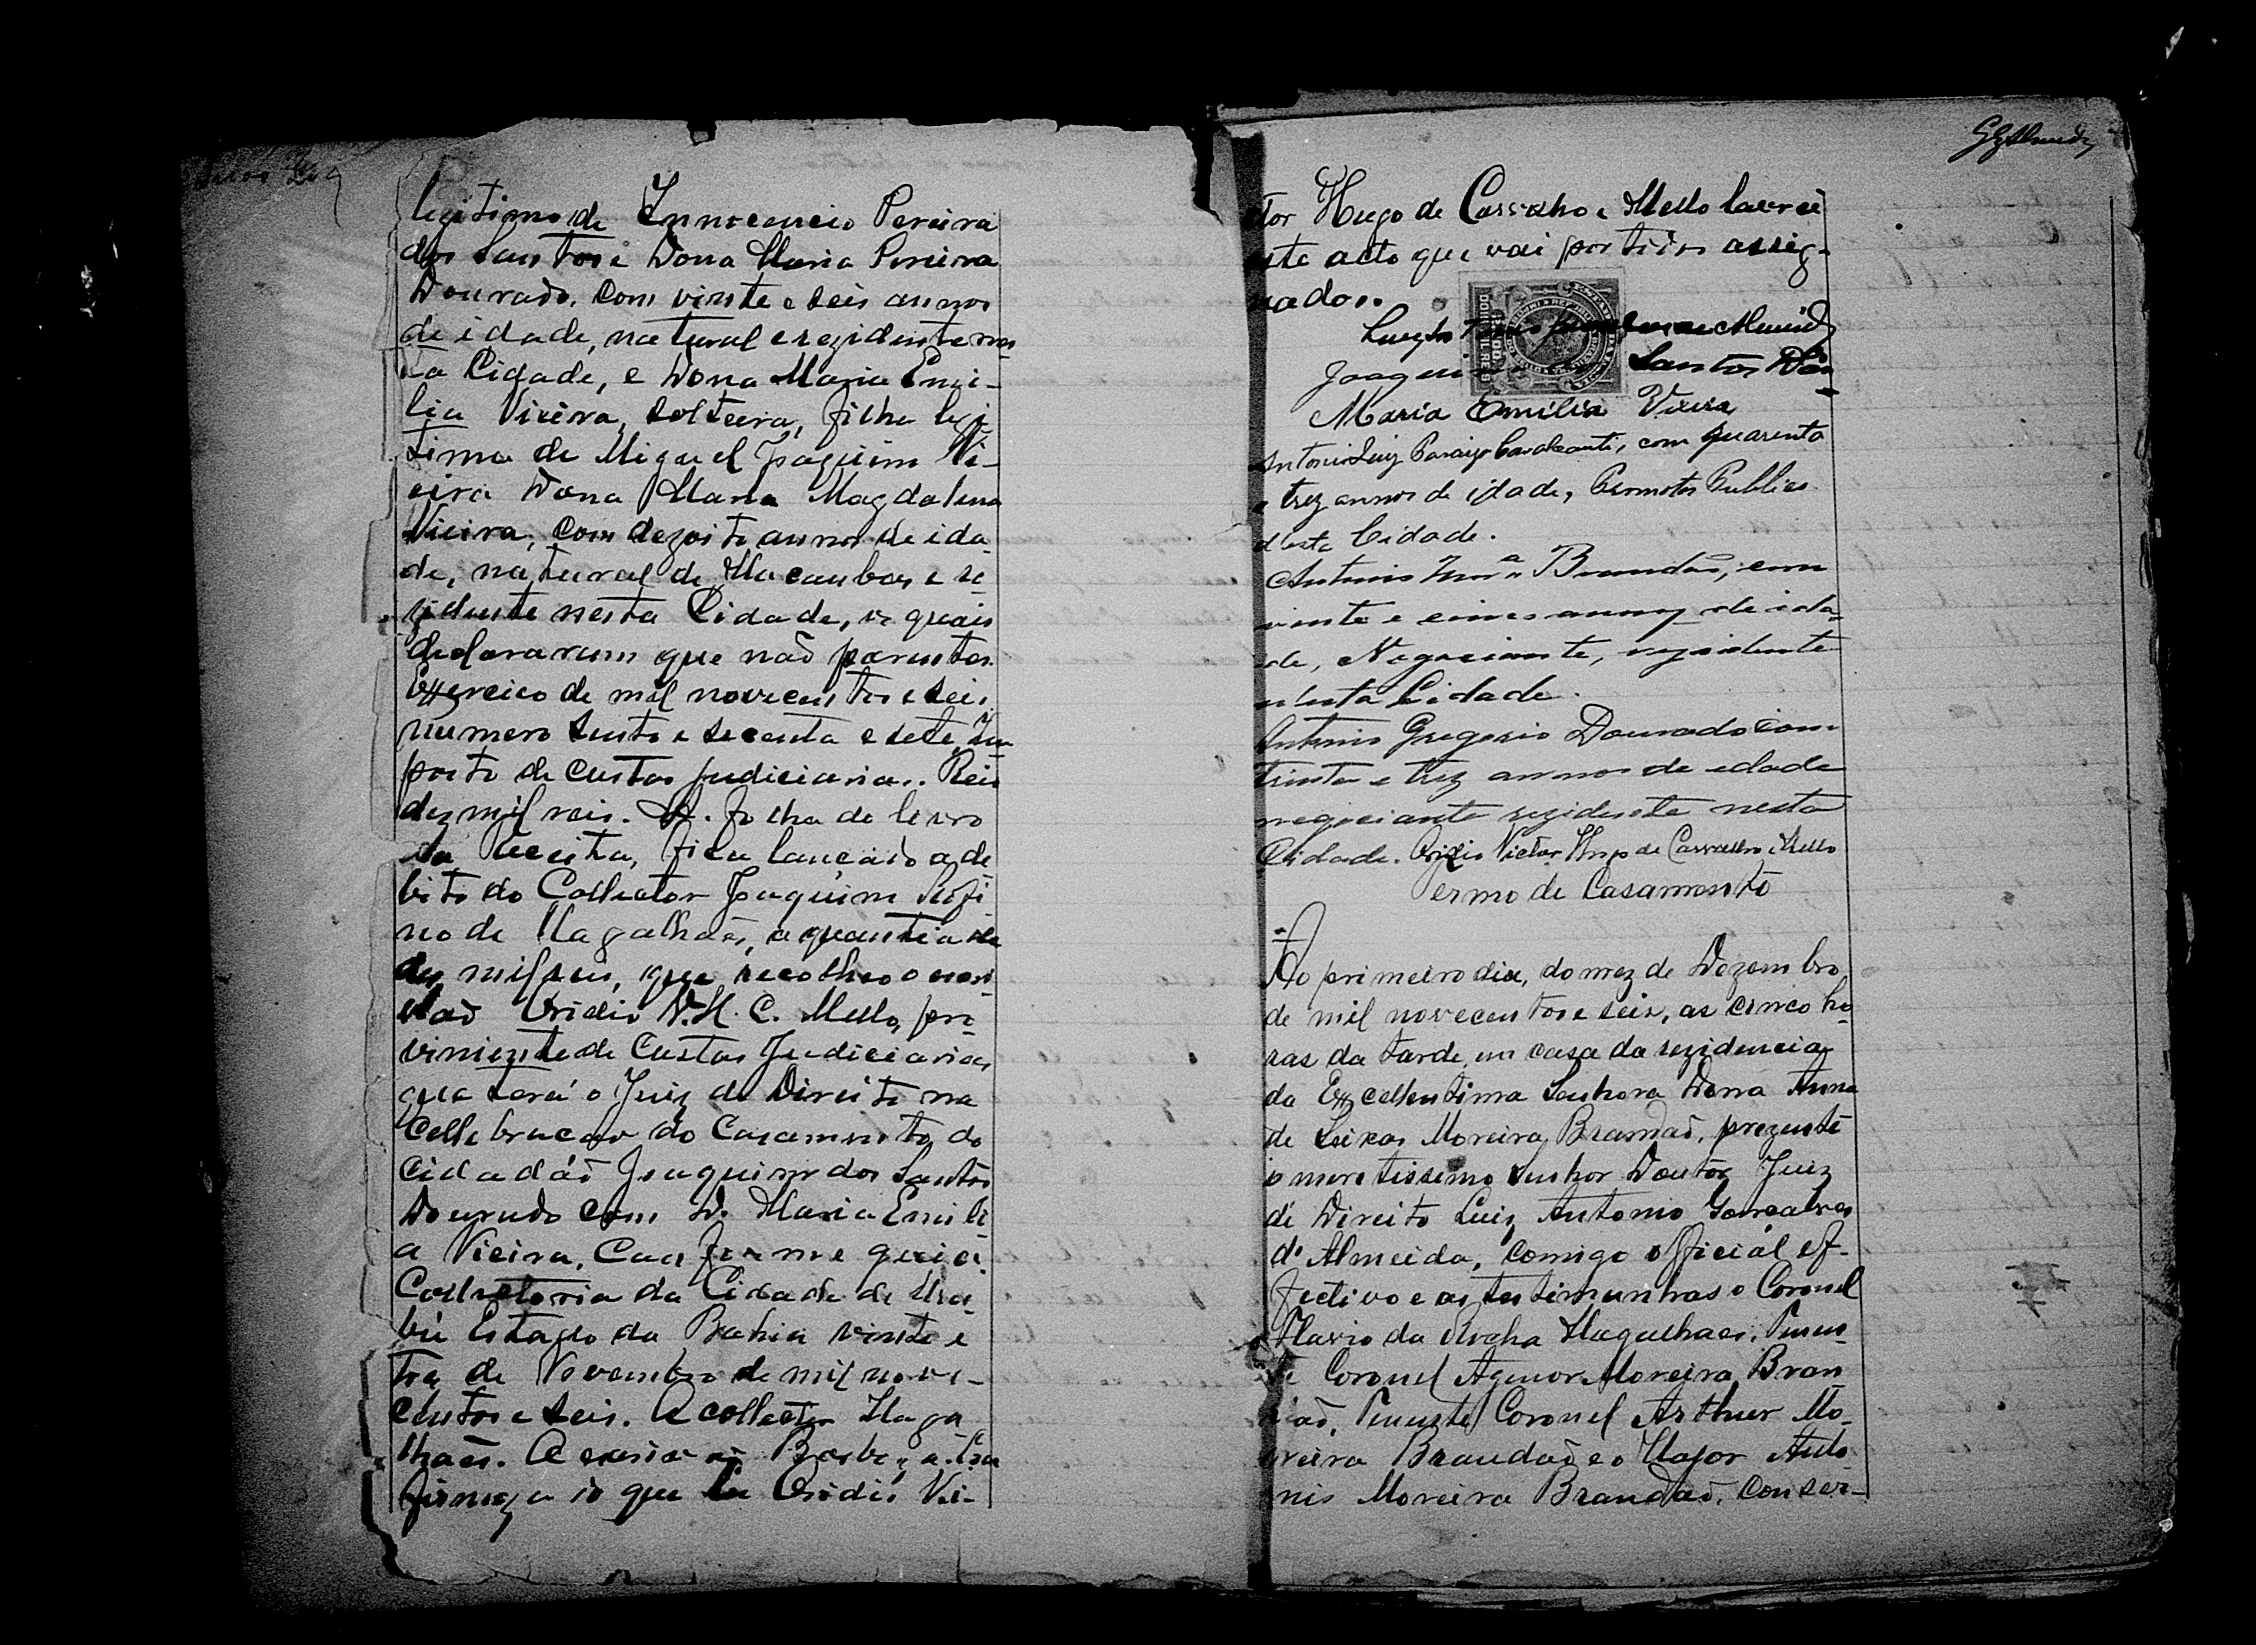 legitimo de Innocencio Pereira
dos Santos e Dona Maria Pereira
Dourado, com vinte e seis annos
de idade, natural e rezidente nes
ta Cidade, e Dona Maria Emi-
lia Vieira, solteira, filha legi
tima de Miguel Joaquim Vi-
eira Dona Maria Magdalena
Vieira, com dezoito annos de ida-
de, natural de Macaubas e re
zidente nesta Cidade, os quais
declararam que não parentes.
Exzercico de mil novecentos e seis
numero sento e secenta e sete Im
posto de custas judiciarias. Reis
dez mil reis. A folha do livro
da Receita, fica lançado a de
bito do Collector Joaquim Rufi
no de Magalhães, a quantia de
dez mil reis, que recolheo o escri
vão Ovidio V. H. C. Mello, pro
viniente de Custas Judiciarias
que terá o Juiz de Direito na
Cellebracão do Casamento do
Cidadão Joaquim dos Santos
Dourado com D. Maria Emili
a Vieira, Conforme guia.
Collectoria da Cidade de Uru-
bú Estado da Bahia vinte e
tres de Novembro de mil nove-
centos e seis. O collector Maga
lhães. O escrivão Barboza.
firmeza do que Eu Ovidio Vi-
ctor Hugo de Carvalho e Mello lavrei
este acto que vai por todos assig-
nados.
Joaquim Santos Dou
Maria Emilia Vieira
Antonio Luiz Cavalcanti, com quarenta
e trez annos de idade, Promotor Publico
desta Cidade.
Antonio Mor.a Brandão, com
vinte e cinco annos de ida
de, Negociante, rezidente
nesta Cidade.
Antonio Gregorio Dourado com
trinta e trez annos de edade
negociante rezidente nesta
Cidade. Ovidio Victor Hugo de Carvalho e Mello
Termo de Casamento
Ao primeiro dia, do mez de Dezembro
de mil novecentos e seis, as cinco ho
ras da tarde em casa da rezidencia
da Exzcellentima Senhora Dona Anna
de Seixas Moreira Brandão, prezente
o meretissimo Senhor Doutor Juiz
de Direito Luiz Antonio Gonçalves
d'Almeida, comigo official ef-
fectivo e as testimunhas o Coronel
Flavio da Rocha Magalhaes, Tenen-
te Coronel Agenor Moreira Bran
dão, Tenente Coronel Arthur Mo-
reira Brandão e o Major Anto
nio Moreira Brandão, conser-